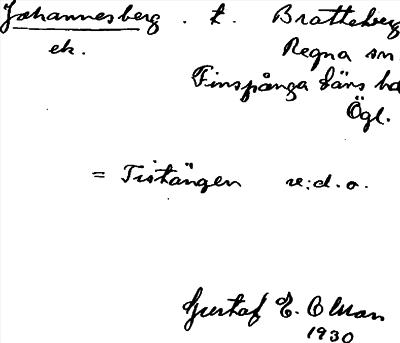 Johannesberg . t. Bratteberg
ek. Regna sn
Finspånga läns hd
Ögl.
= Tistängen se:d.o.
Gustaf E. Olsson
1930